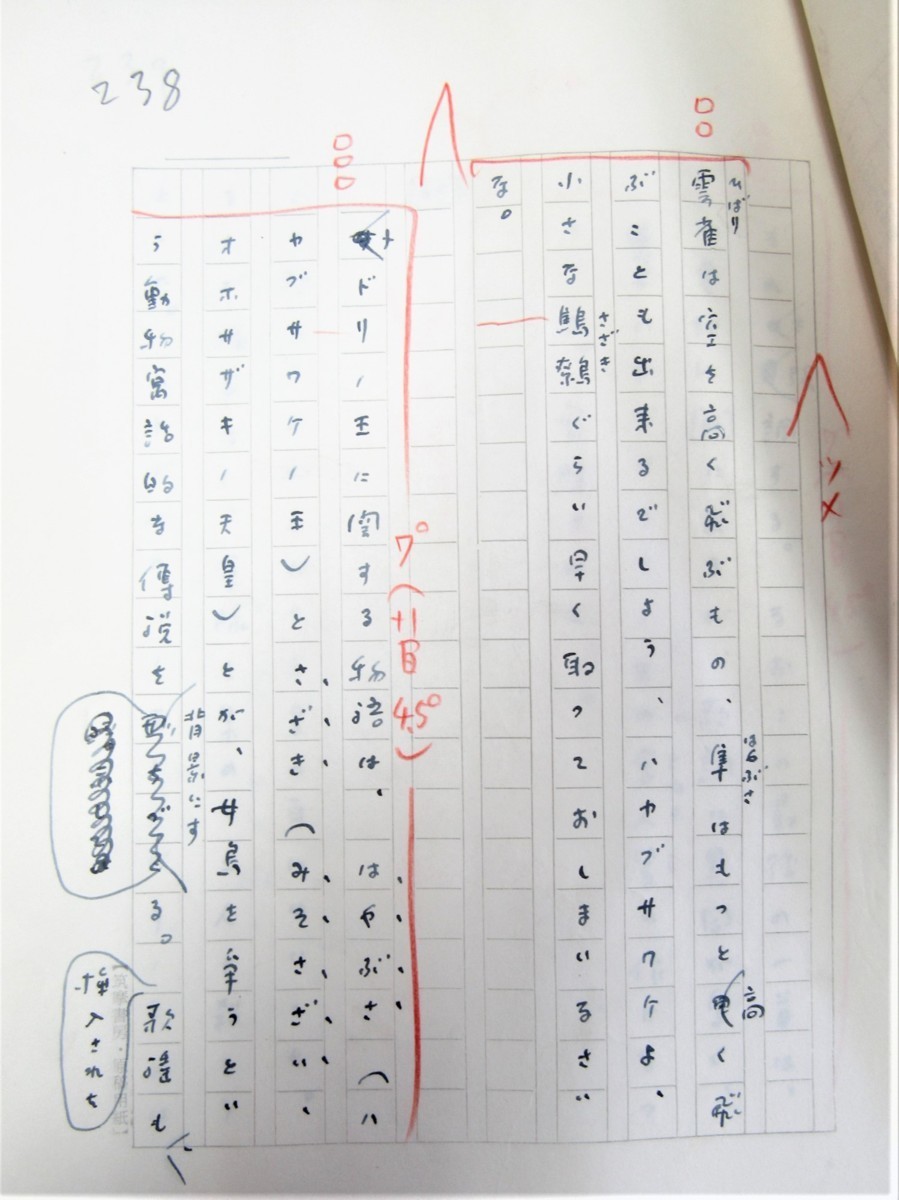 238
ツメ
雲雀は空を高く飛ぶもの、隼はもっと高く飛
ひばり
はやぶさ
ぶことも出来るでしょう、ハヤブサワケよ、
小さな鷦鷯ぐらい早く取っておしまいなさい
さざき
な。
7°(11目4.5°)
メドリノ王に関する物語は、はやぶさ(ハ
ヤブサワケノ王)とさざき(みそさざい、
オホサザキノ天皇)とが、女鳥を争うとい
う動物寓話的な伝説を
背景にす
る。
歌謡も
挿入された